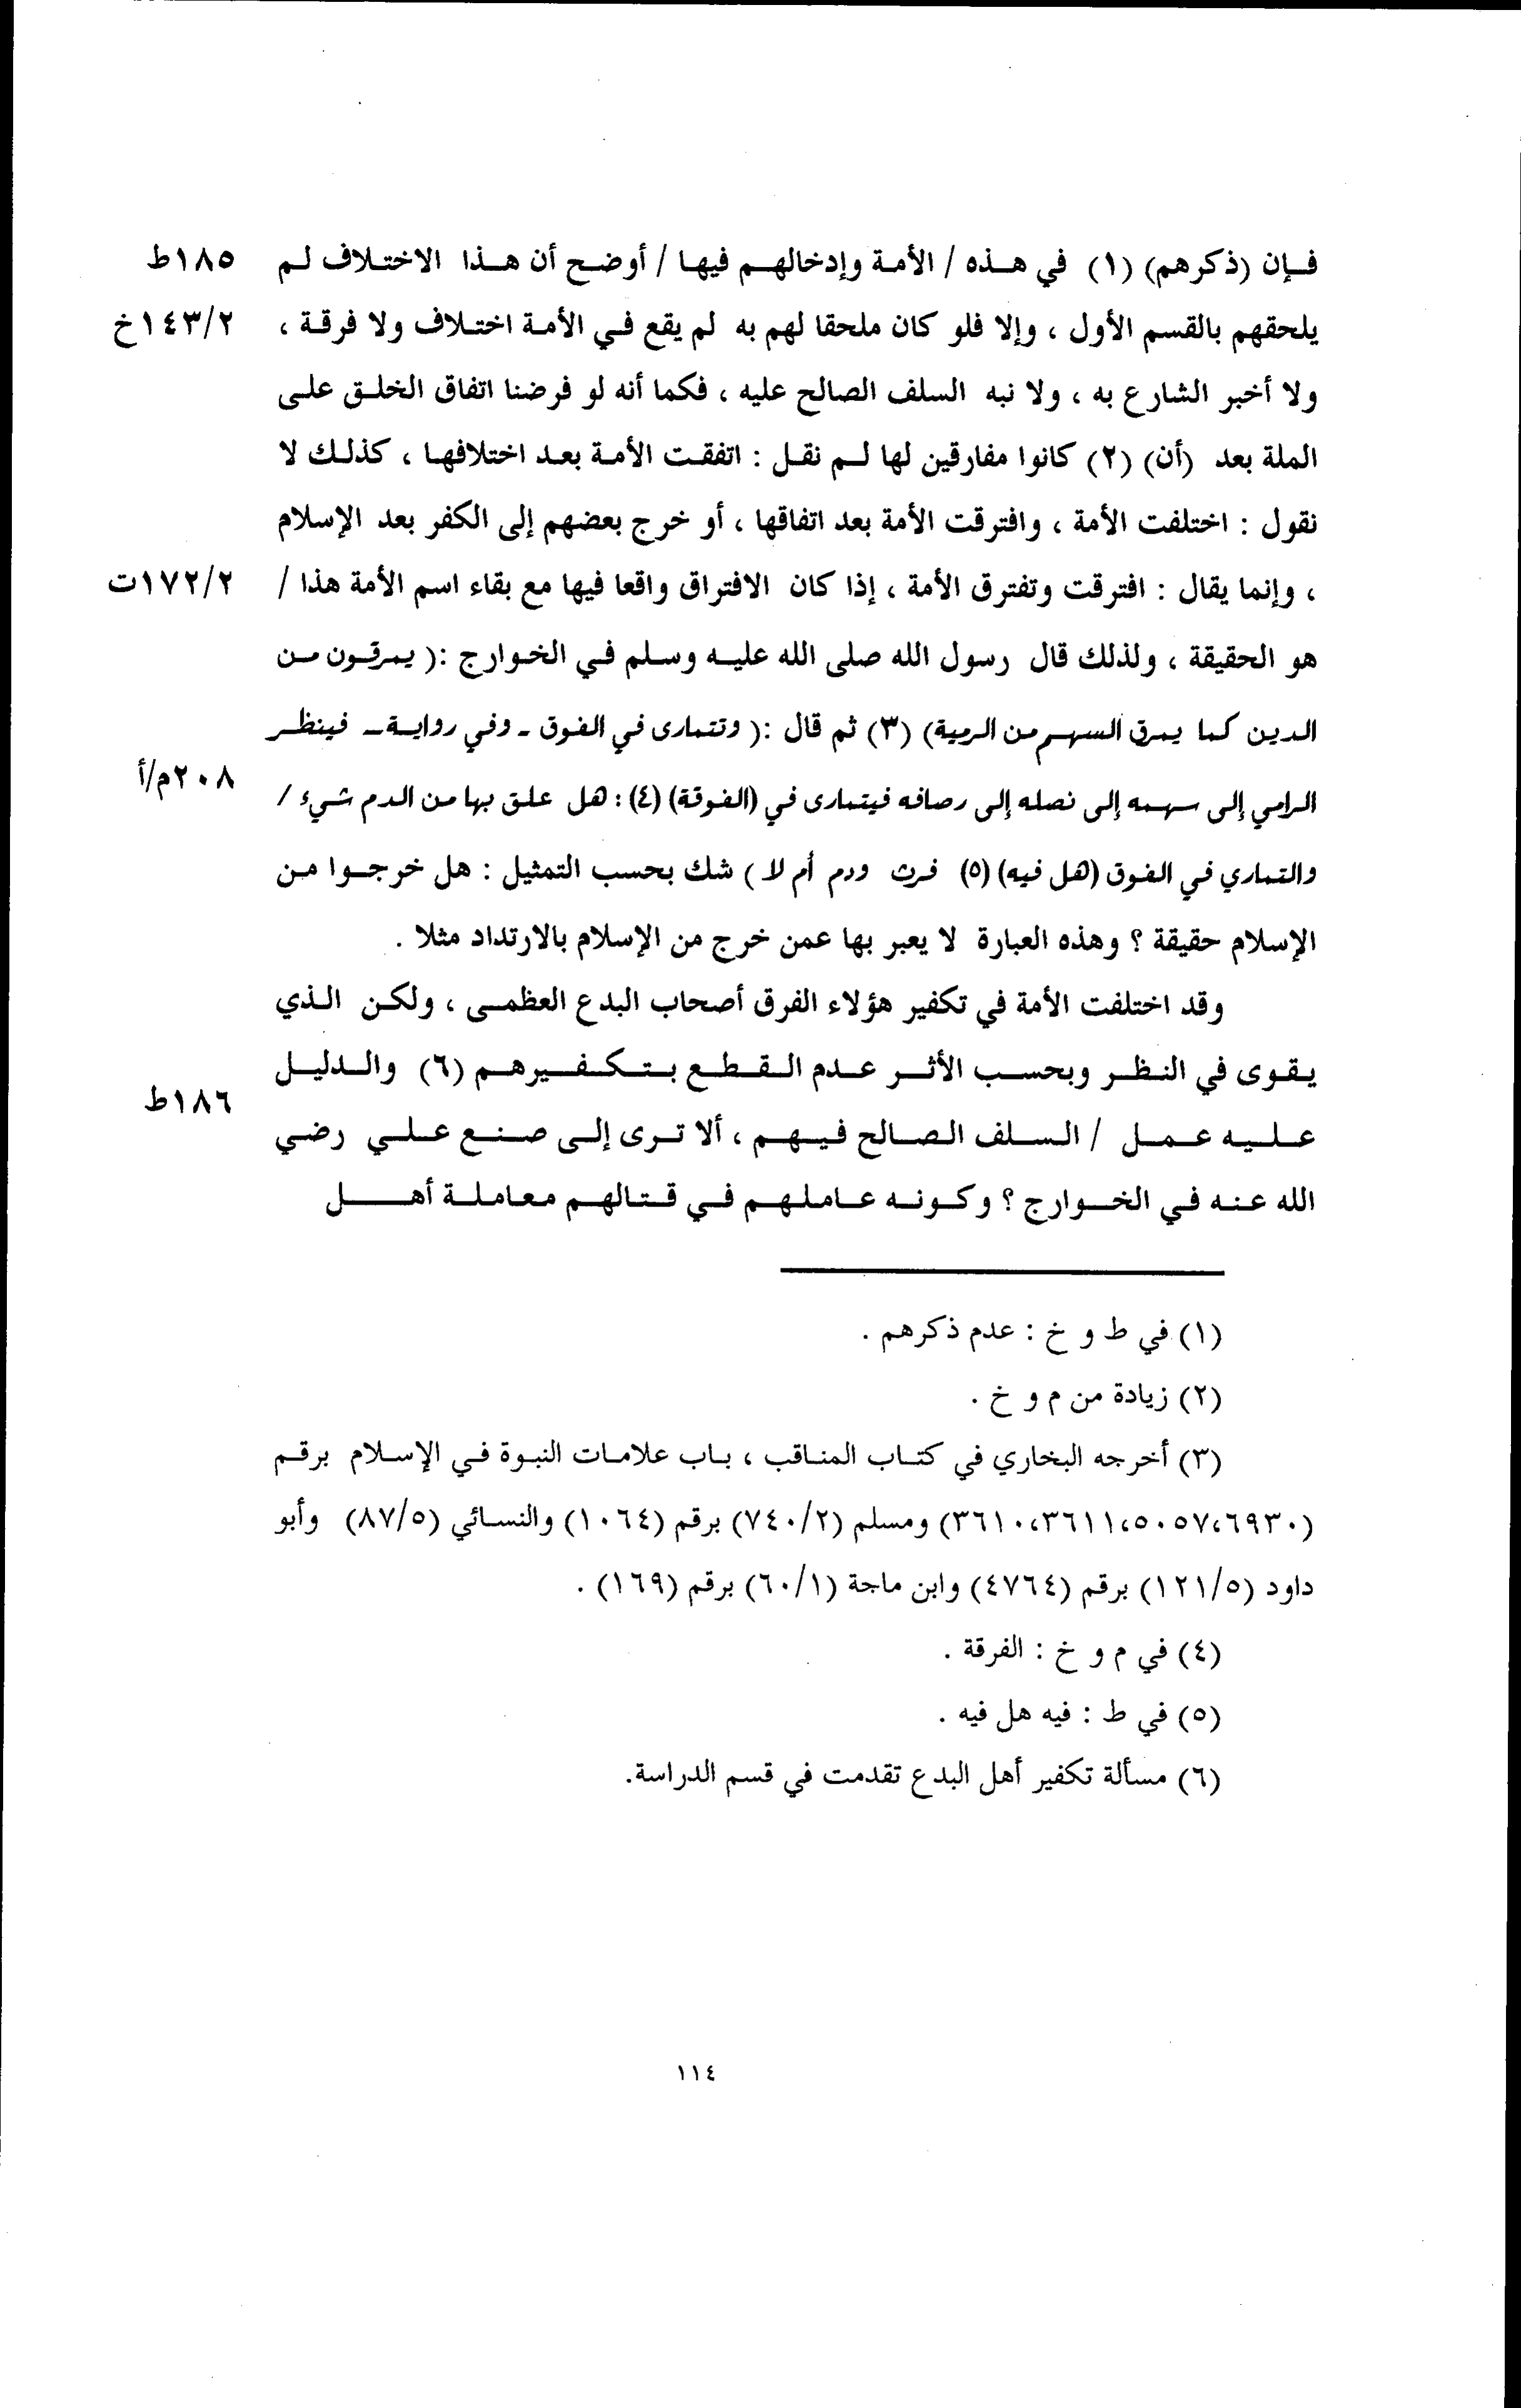 فإن (ذكرهم) (١) في هذه / الأمة وإدخالهم فيها / أوضح أن هذا الاختلاف لم
١٨٥ط
يلحقهم بالقسم الأول ، وإلا فلو كان ملحقا لهم به لم يقع في الأمة اختلاف ولا فرقة ،
١٤٣/٢خ
ولا أخبر الشارع به ، ولا نبه السلف الصالح عليه ، فكما أنه لو فرضنا اتفاق الخلق على
الملة بعد (أن) (٢) كانوا مفارقين لها لم نقل : اتفقت الأمة بعد اختلافها ، كذلك لا
نقول : اختلفت الأمة ، وافترقت الأمة بعد اتفاقها ، أو خرج بعضهم إلى الكفر بعد الإسلام
، وإنما يقال : افترقت وتفترق الأمة ، إذا كان الافتراق واقعا فيها مع بقاء اسم الأمة هذا /
١٧٢/٢ت
هو الحقيقة ، ولذلك قال رسول الله صلى الله عليه وسلم في الخوارج :( يمرقون من
الدين كما يمرق السهم من الرمية) (٣) ثم قال :( وتتمارى في الفوق - وفي رواية - فينظر
الرامي إلى سهمه إلى نصله إلى رصافه فيتمارى في (الفوقة) (٤) : هل علق بها من الدم شيء /
٢٠٨م/أ
والتماري في الفوق (هل فيه) (٥) فرث ودم أم لا ) شك بحسب التمثيل : هل خرجوا من
الإسلام حقيقة ؟ وهذه العبارة لا يعبر بها عمن خرج من الإسلام بالارتداد مثلا .
وقد اختلفت الأمة في تكفير هؤلاء الفرق أصحاب البدع العظمى ، ولكن الذي
يقوى في النظر وبحسب الأثر عدم القطع بتكفيرهم (٦) والدليل
عليه عمل / السلف الصالح فيهم ، ألا ترى إلى صنع علي رضي
١٨٦ط
الله عنه في الخوارج ؟ وكونه عاملهم في قتالهم معاملة أهل
(١) في ط و خ : عدم ذكرهم .
(٢) زيادة من م و خ .
(٣) أخرجه البخاري في كتاب المناقب ، باب علامات النبوة في الإسلام برقم
(٣٦١٠،٣٦١١،٥٠٥٧،٦٩٣٠) ومسلم (٧٤٠/٢) برقم (١٠٦٤) والنسائي (٨٧/٥) وأبو
داود (١٢١/٥) برقم (٤٧٦٤) وابن ماجة (٦٠/١) برقم (١٦٩) .
(٤) في م و خ : الفرقة .
(٥) في ط : فيه هل فيه .
(٦) مسألة تكفير أهل البدع تقدمت في قسم الدراسة.
١١٤